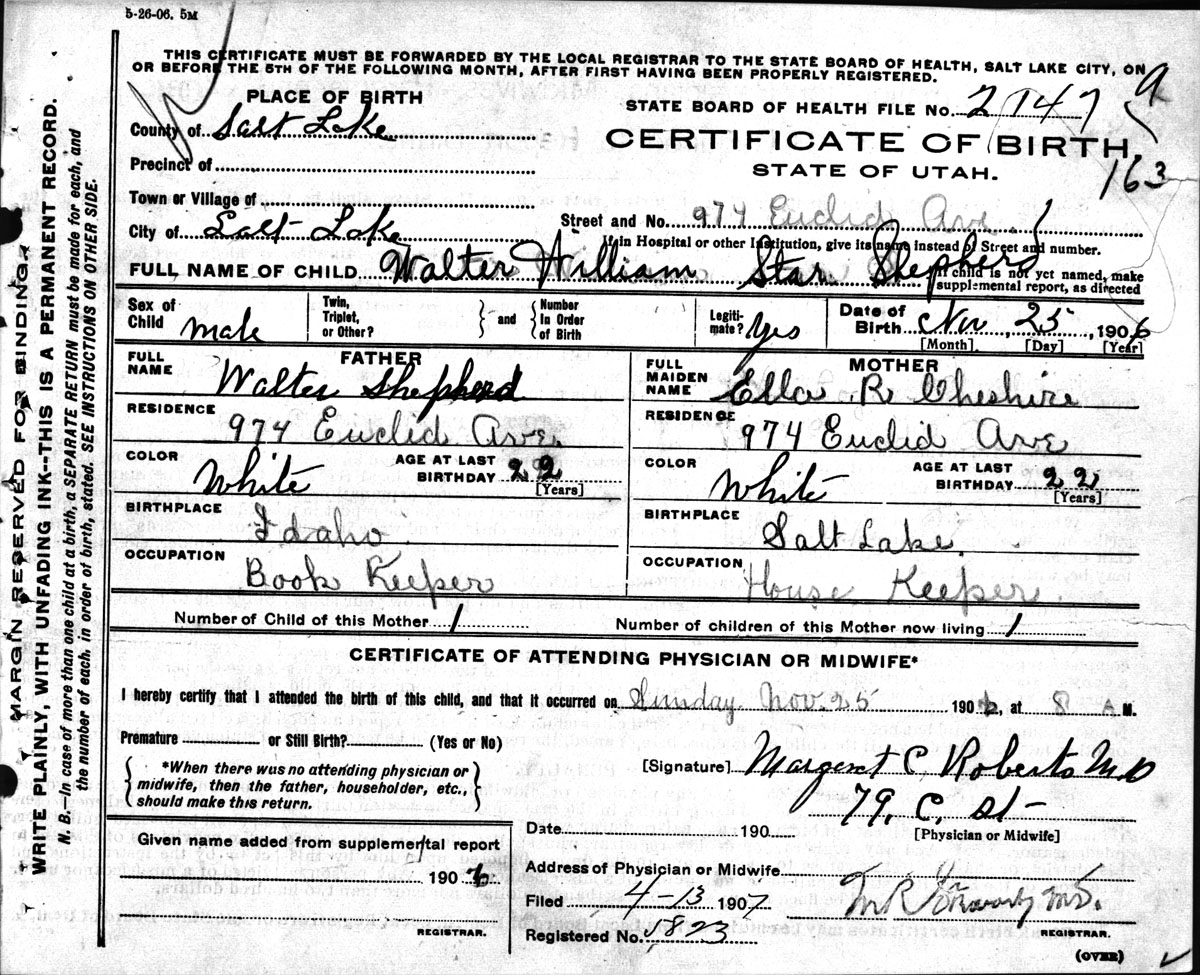 5-26-06. 5M
THIS CERTIFICATE MUST BE FORWARDED BY THE LOCAL REGISTRAR TO THE STATE BOARD OF HEALTH, SALT LAKE CITY, ON
OR BEFORE THE 5TH OF THE FOLLOWING MONTH, AFTER FIRST HAVING BEEN PROPERLY REGISTERED.
PLACE OF BIRTH
STATE BOARD OF HEALTH FILE No. 2747
County of Salt Lake
CERTIFICATE OF BIRTH
163
Precinct of
STATE OF UTAH.
Town or Village of
Street and No. 974 Euclid Ave.
City of Salt Lake
If in Hospital or other Institution, give its name instead of Street and number.
FULL NAME OF CHILD Walter William Star Shepherd
If child is not yet named, make
supplemental report, as directed
Sex of Child male
Twin, Triplet, or Other? and Number In Order of Birth
Legitimate? Yes
Date of Birth Nov 25, 1906
[Month] [Day] [Year]
FATHER
FULL NAME Walter Shepherd
RESIDENCE 974 Euclid Ave.
COLOR White AGE AT LAST BIRTHDAY 22
[Years]
BIRTHPLACE Idaho
OCCUPATION Book Keeper
MOTHER
FULL MAIDEN NAME Ella R Cheshire
RESIDENCE 974 Euclid Ave
COLOR White AGE AT LAST BIRTHDAY 22
[Years]
BIRTHPLACE Salt Lake.
OCCUPATION House Keeper.
Number of Child of this Mother 1 Number of children of this Mother now living 1
CERTIFICATE OF ATTENDING PHYSICIAN OR MIDWIFE*
I hereby certify that I attended the birth of this child, and that it occurred on Sunday Nov. 25 1906, at 8 A M.
Premature or Still Birth? (Yes or No)
*When there was no attending physician or
midwife, then the father, householder, etc.,
should make this return.
[Signature] Margaret C. Roberts M.D
79. C. St-
[Physician or Midwife]
Date 190
Given name added from supplemental report
1906
REGISTRAR.
Address of Physician or Midwife
Filed 4-13 1907
M.D.
Registered No. 5823
REGISTRAR.
(OVER)
MARGIN RESERVED FOR BINDING.
WRITE PLAINLY, WITH UNFADING INK--THIS IS A PERMANENT RECORD.
N. B.—In case of more than one child at a birth, a SEPARATE RETURN must be made for each, and
the number of each, in order of birth, stated. SEE INSTRUCTIONS ON OTHER SIDE.